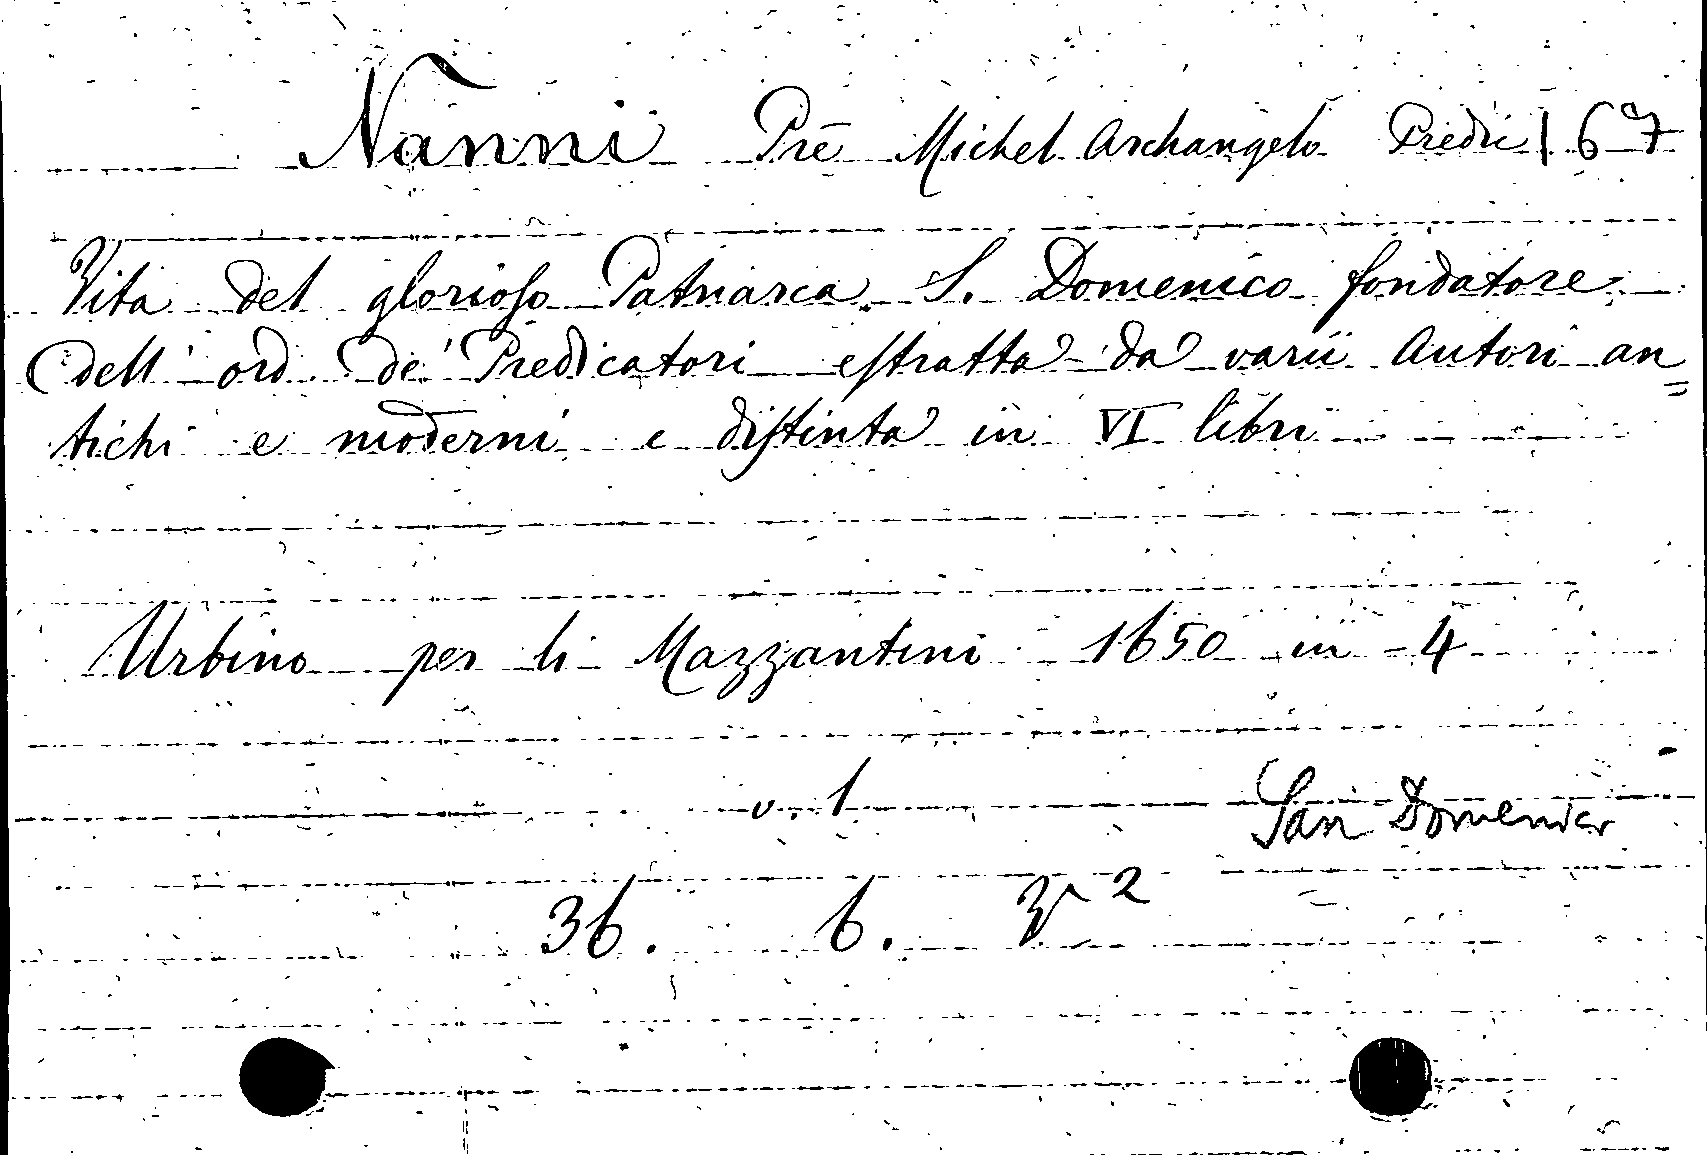 Nanni Prē Michel Archangelo Predic 167
Vita del glorioso Patriarca S. Domenico fondatore
dell' ord. de' Predicatori estratta da varii Autori an=
tichi e moderni e distinta in VI libri
Urbino per li Mazzantini 1650 in 4
v. 1
San Domenico
36. 6. 3ª 2